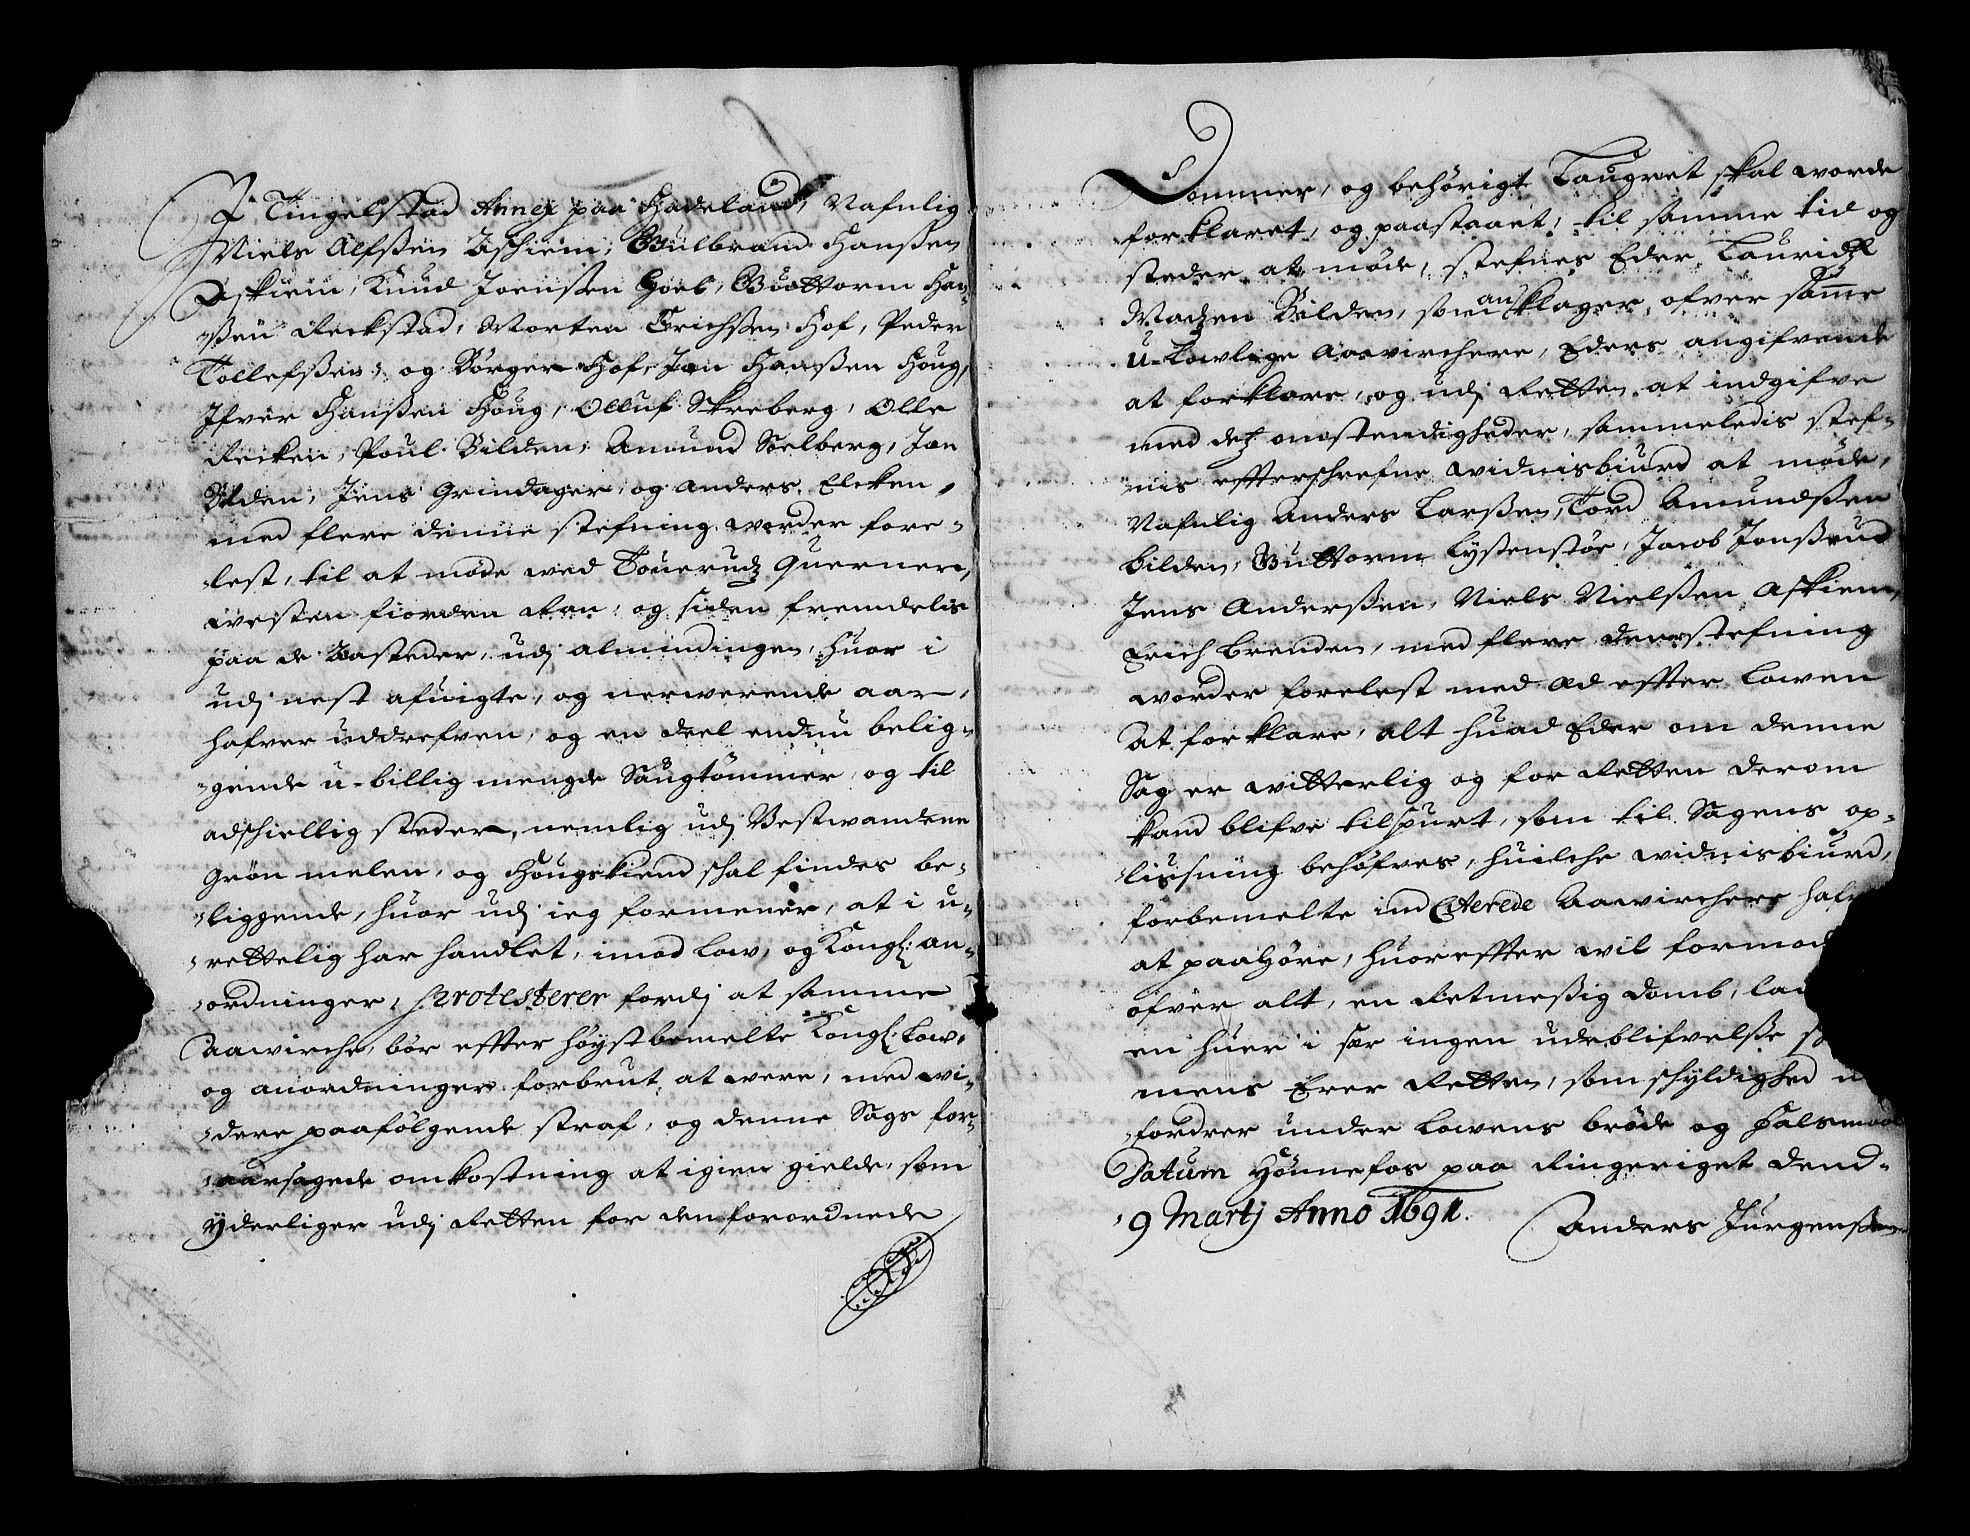 I Tingelstad Annex paa Hadeland, Nafnlig
Niels Alfsßen Aschiem, Gulbrand Hansßen
Askiem, Knud Joensßen Hoel, Guttorm Han-
-sßen Reckstad, Morten Erichsßen Hof, Peder
Tollefsßen, og Børger Hof, Jan Hansßen Houg,
Ifver Hansßen Houg, Olluf Skreberg, Olle
Recken, Poul Bilden, Amund Sælberg, Jan
Bilden, Jens Grindager, og Anders Elcken,
med flere denne stefning worder fore-
-lest, til at møde wed Touerudz Querner,
westen fiorden Ran, og siden fremdelis
paa de Aasteder, udj almindingen, huor i
udj nest afvigte, og nerwerende aar,
hafver uddrefven, og en deel endnu belig-
-gende u-billig mengde Saugtømmer, og til
adschiellig steder, nemlig udj Vestwandene
Grøn melen, og Hougskiend schal findes be-
-liggende, huor udj ieg formener, at i u-
-rettelig har handlet, imod low, og Kongl: an-
-ordninger, protesterer fordj at samme
Aawirche, bør effter høystbemelte Kongl: Low,
og anordninger forbrut at were, med wi-
-dere paafølgende straf, og denne Sags for-
-aarsagede omkostning at igien gielde, som
yderliger udj Retten for den forordnede
Dommer, og behørigt Laugret skal worde
forklaret, og paastaaet, til samme tid og
steder at møde, stefnes Eder Lauridz
Madzen Bilden, som an klager, ofver samme
u-lowlige Aawirchere, Eders angifvende
at forklare, og udj Retten at indgifve
med dez omstendigheder, sammeledis stef-
-nis effterschrefne widnisbiurd at møde,
Nafnlig Anders Larsßen, Tord Amundsßen
Bilden, Guttorm Lysenstøe, Jacob Jonsßrud
Jens Andersßen, Niels Nielsßen Askiem,
Erich Brenden, med flere denne stefning
worder forelest med Æd effter Lowen
At forklare, alt huad Eder om denne
Sag er witterlig og for Retten derom
kand blifve tilspurt, som til Sagens op-
-liusning behøfves, huilche widnisbiurd,
forbemelte indCiterede Aawirchere haf
at paahøre, huoreffter wil formod
ofver alt, en Retmesßig domb, lad
en huer i sær ingen udeblifvelsße
mens Erer Retten, som schyldighed
-fordrer under Lowens brøde og Falsmaal
Datum Hønnefos paa Ringeriget dend-
-9 Martj Anno 1691.
Anders Jurgensßen